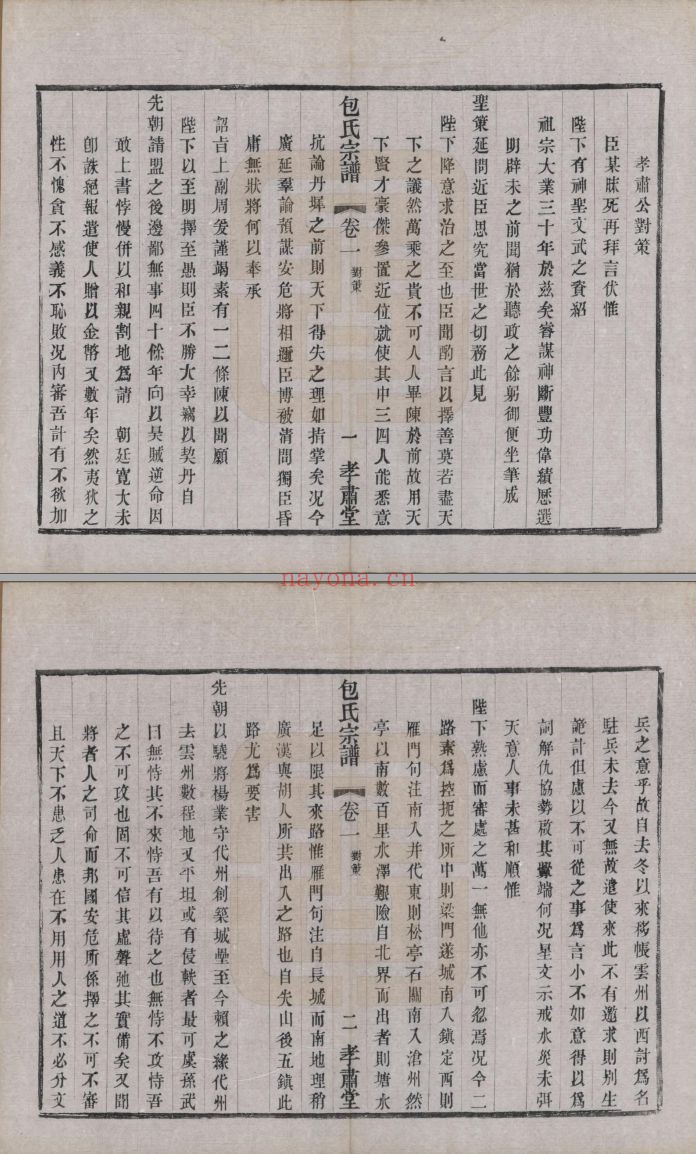 孝肅公對策
臣某昧死再拜言伏惟
陛下有神聖文武之資紹
祖宗大業三十年於茲矣睿謀神斷豐功偉績歷選
明辟未之前聞猶於聽政之餘躬御便坐筆成
聖策延問近臣思究當世之切務此見
陛下降意求治之至也臣聞酌言以擇善莫若盡天
下之議然萬乘之貴不可人人畢陳於前故用天
下賢才豪傑參置近位就使其中三四人能悉意
包氏宗譜
卷一
對策
一
孝肅堂
抗論丹墀之前則天下得失之理如指掌矣況今
廣延羣論預謀安危將相邇臣博被清問獨臣昏
庸無狀將何以奉承
詔旨上副周爰謹竭素有一二條陳以聞願
陛下以至明擇至愚則臣不勝大幸竊以契丹自
先朝請盟之後邊鄙無事四十餘年向以昊賊逆命因
敢上書悖慢併以和親割地爲請 朝廷寬大未
卽誅絕報遣使人贈以金幣又數年矣然夷狄之
性不愧貪不感義不恥敗況內審吾計有不欲加
nayona.cn
兵之意乎故自去冬以來移帳雲州以西討爲名
駐兵未去今又無故遣使來此不有邀求則別生
詭計但慮以不可從之事爲言小不如意得以爲
詞解仇協勢啟其釁端何況星文示戒水災未弭
天意人事未甚和順惟
陛下熟慮而審處之萬一無他亦不可忽焉況今二
路素爲控扼之所中則梁門遂城南入鎮定西則
雁門句注南入并代東則松亭石關南入滄州然
亭以南數百里水澤艱險自北界而出者則塘水
包氏宗譜
卷一
對策
二
孝肅堂
足以限其來路惟雁門句注自長城而南地理稍
廣漢與胡人所共出入之路也自失山後五鎮此
路尤爲要害
先朝以驍將楊業守代州創築城壘至今賴之緣代州
去雲州數程地又平坦或有侵軼者最可虞孫武
曰無恃其不來恃吾有以待之也無恃不攻恃吾
之不可攻也固不可信其虛聲弛其實備矣又聞
將者人之司命而邦國安危所係擇之不可不審
且天下不患乏人患在不用用人之道不必分文